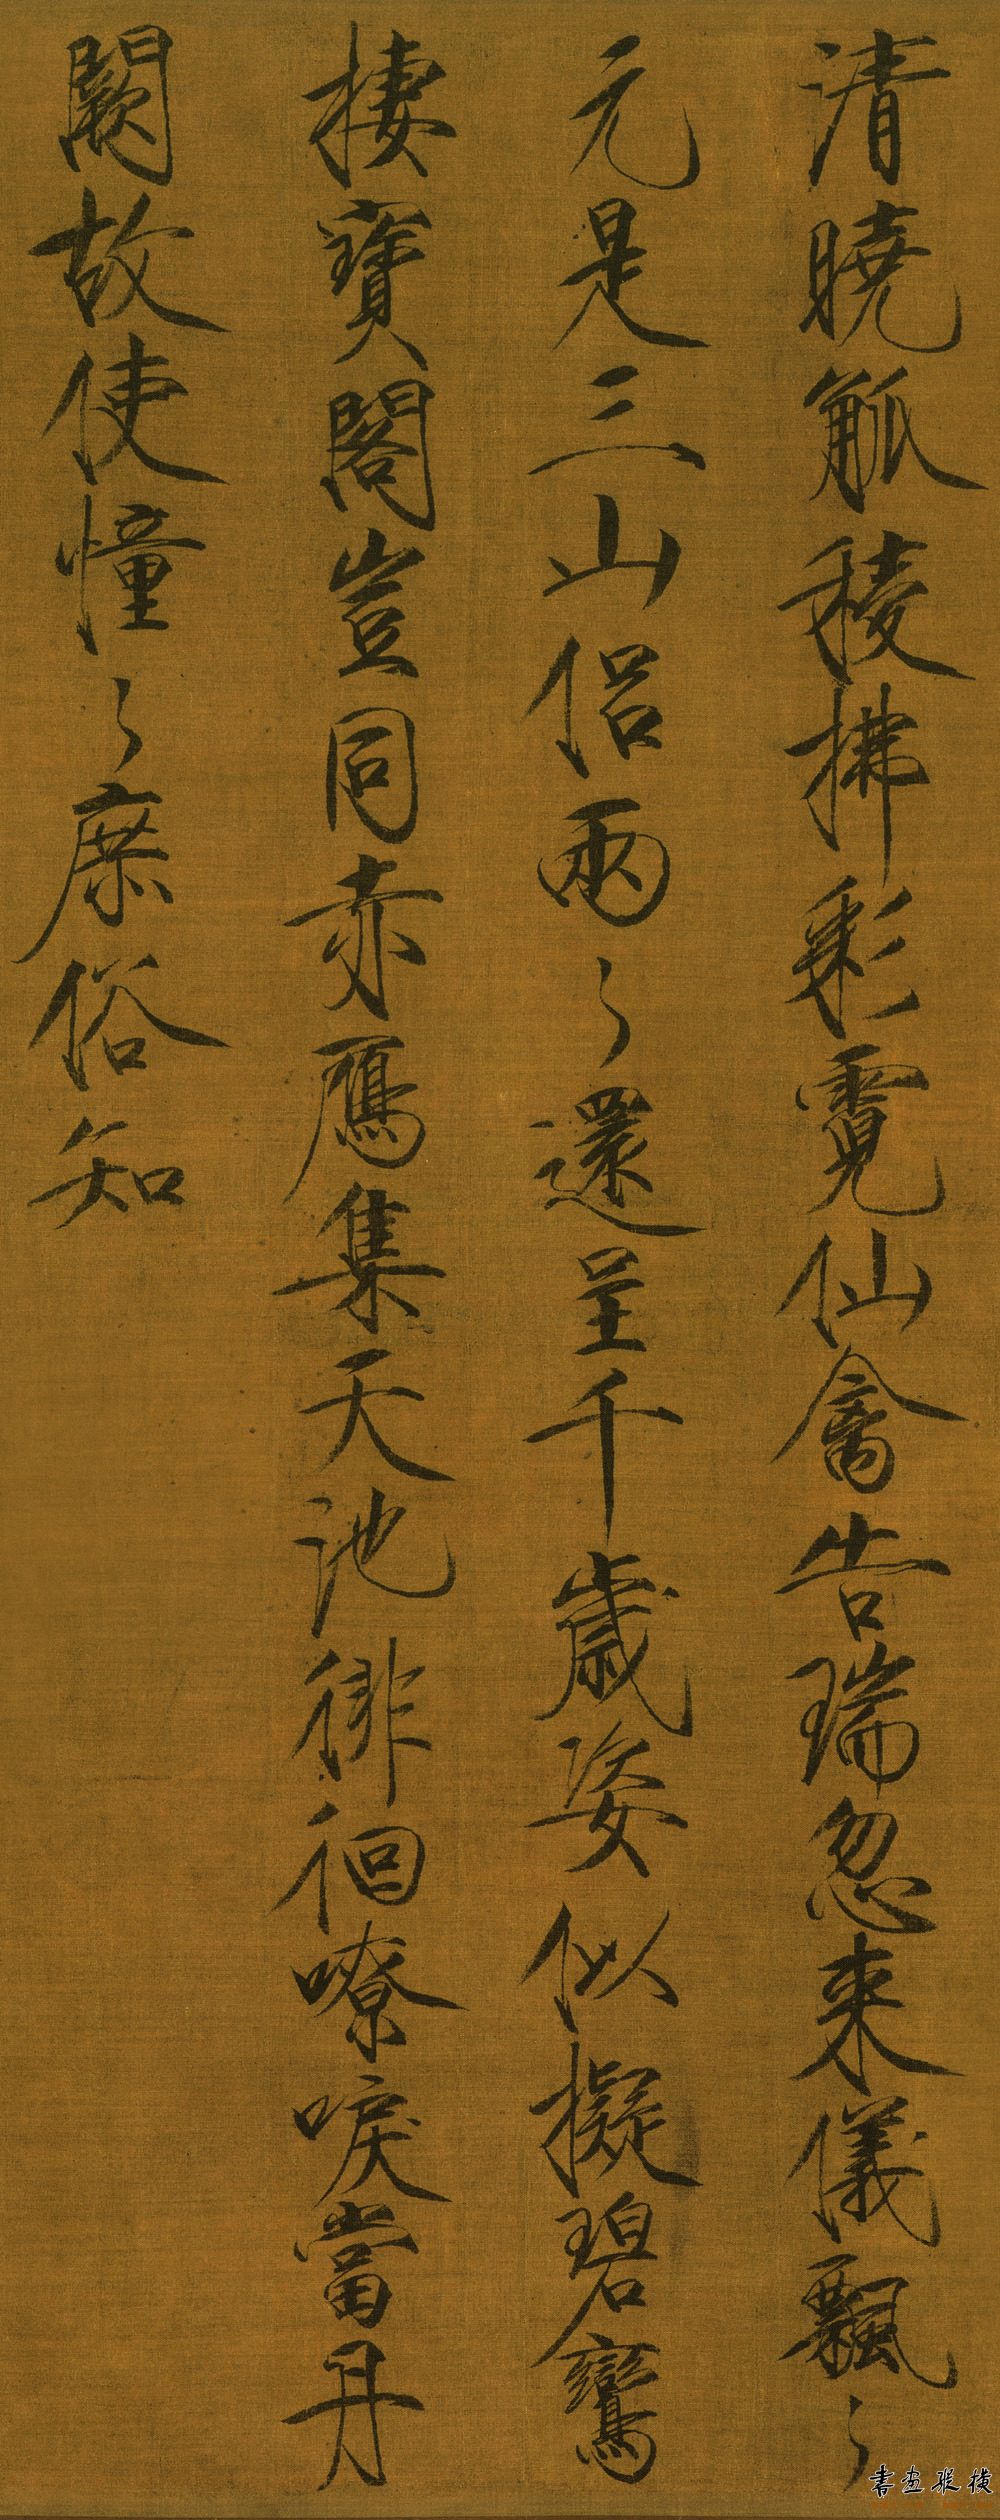 清曉觚稜拂彩霓仙禽告瑞忽来儀飄〻
元是三山侣兩〻還呈千歲姿似擬碧鸞
棲寶閣豈同赤鴈集天池徘徊嘹唳當丹
闕故使憧〻庶俗知
書畫縱橫